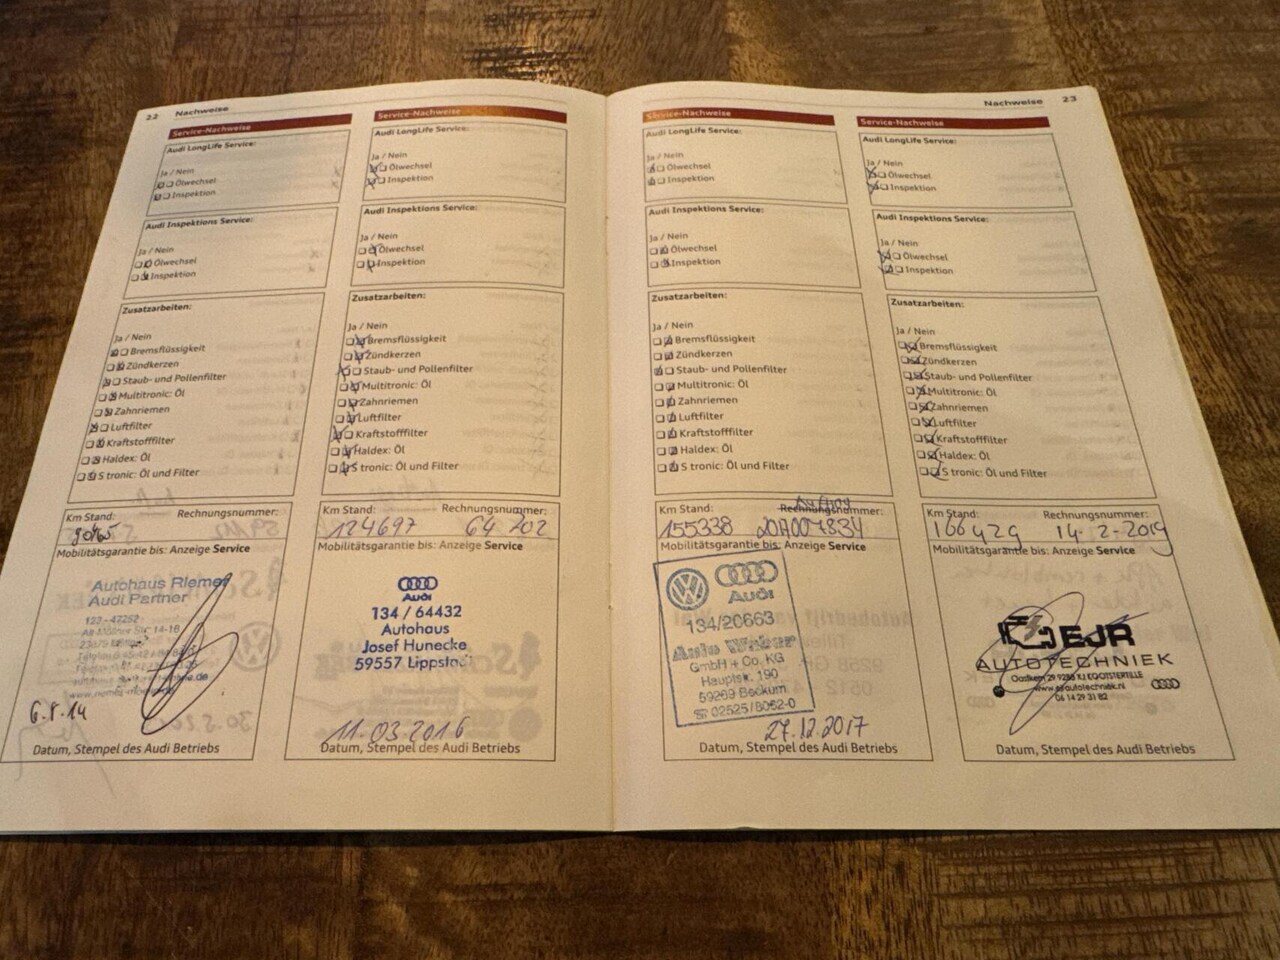 22 Nachweise
Service-Nachweise
Audi LongLife Service:
Ja / Nein
Ölwechsel
Inspektion
Audi Inspektions Service:
Ja / Nein
Ölwechsel
Inspektion
Zusatzarbeiten:
Ja / Nein
Bremsflüssigkeit
Zündkerzen
Staub- und Pollenfilter
Multitronic: Öl
Zahnriemen
Luftfilter
Kraftstofffilter
Haldex: Öl
S tronic: Öl und Filter
Km Stand: Rechnungsnummer:
Mobilitätsgarantie bis: Anzeige Service
Autohaus Riemer
Audi Partner
6.8.14
Datum, Stempel des Audi Betriebs
Service-Nachweise
Audi LongLife Service:
Ja / Nein
Ölwechsel
Inspektion
Audi Inspektions Service:
Ja / Nein
Ölwechsel
Inspektion
Zusatzarbeiten:
Ja / Nein
Bremsflüssigkeit
Zündkerzen
Staub- und Pollenfilter
Multitronic: Öl
Zahnriemen
Luftfilter
Kraftstofffilter
Haldex: Öl
S tronic: Öl und Filter
Km Stand: Rechnungsnummer:
124697 64 202
Mobilitätsgarantie bis: Anzeige Service
Audi
134 / 64432
Autohaus
Josef Hunecke
59557 Lippstadt
11.03.2016
Datum, Stempel des Audi Betriebs
Nachweise 23
Service-Nachweise
Audi LongLife Service:
Ja / Nein
Ölwechsel
Inspektion
Audi Inspektions Service:
Ja / Nein
Ölwechsel
Inspektion
Zusatzarbeiten:
Ja / Nein
Bremsflüssigkeit
Zündkerzen
Staub- und Pollenfilter
Multitronic: Öl
Zahnriemen
Luftfilter
Kraftstofffilter
Haldex: Öl
S tronic: Öl und Filter
Km Stand: Rechnungsnummer:
155338
Mobilitätsgarantie bis: Anzeige Service
Audi
134/20663
Auto Weber
GmbH + Co. KG
Hauptstr. 190
59269 Beckum
02525/8062-0
27.12.2017
Datum, Stempel des Audi Betriebs
Service-Nachweise
Audi LongLife Service:
Ja / Nein
Ölwechsel
Inspektion
Audi Inspektions Service:
Ja / Nein
Ölwechsel
Inspektion
Zusatzarbeiten:
Ja / Nein
Bremsflüssigkeit
Zündkerzen
Staub- und Pollenfilter
Multitronic: Öl
Zahnriemen
Luftfilter
Kraftstofffilter
Haldex: Öl
S tronic: Öl und Filter
Km Stand: Rechnungsnummer:
166429 14-2-2019
Mobilitätsgarantie bis: Anzeige Service
EJR
AUTOTECHNIEK
KOOTSTERTILLE
06 14 29 31 82
Datum, Stempel des Audi Betriebs